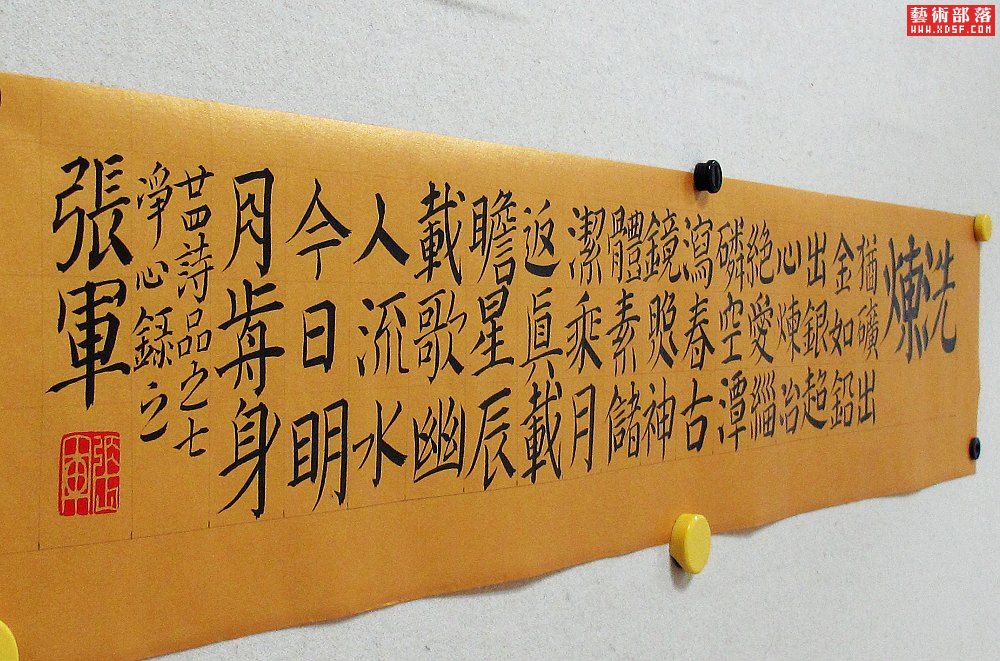 藝術部落
WWW.XDSF.COM
洗
煉
猶礦出
金如鉛
出銀超
心煉冶
絕愛緇
磷空潭
瀉春古
鏡照神
體素儲
潔乘月
返眞載
瞻星辰
載歌幽
人流水
今日明
月歬身
廿四詩品之七
淨心録之
張軍